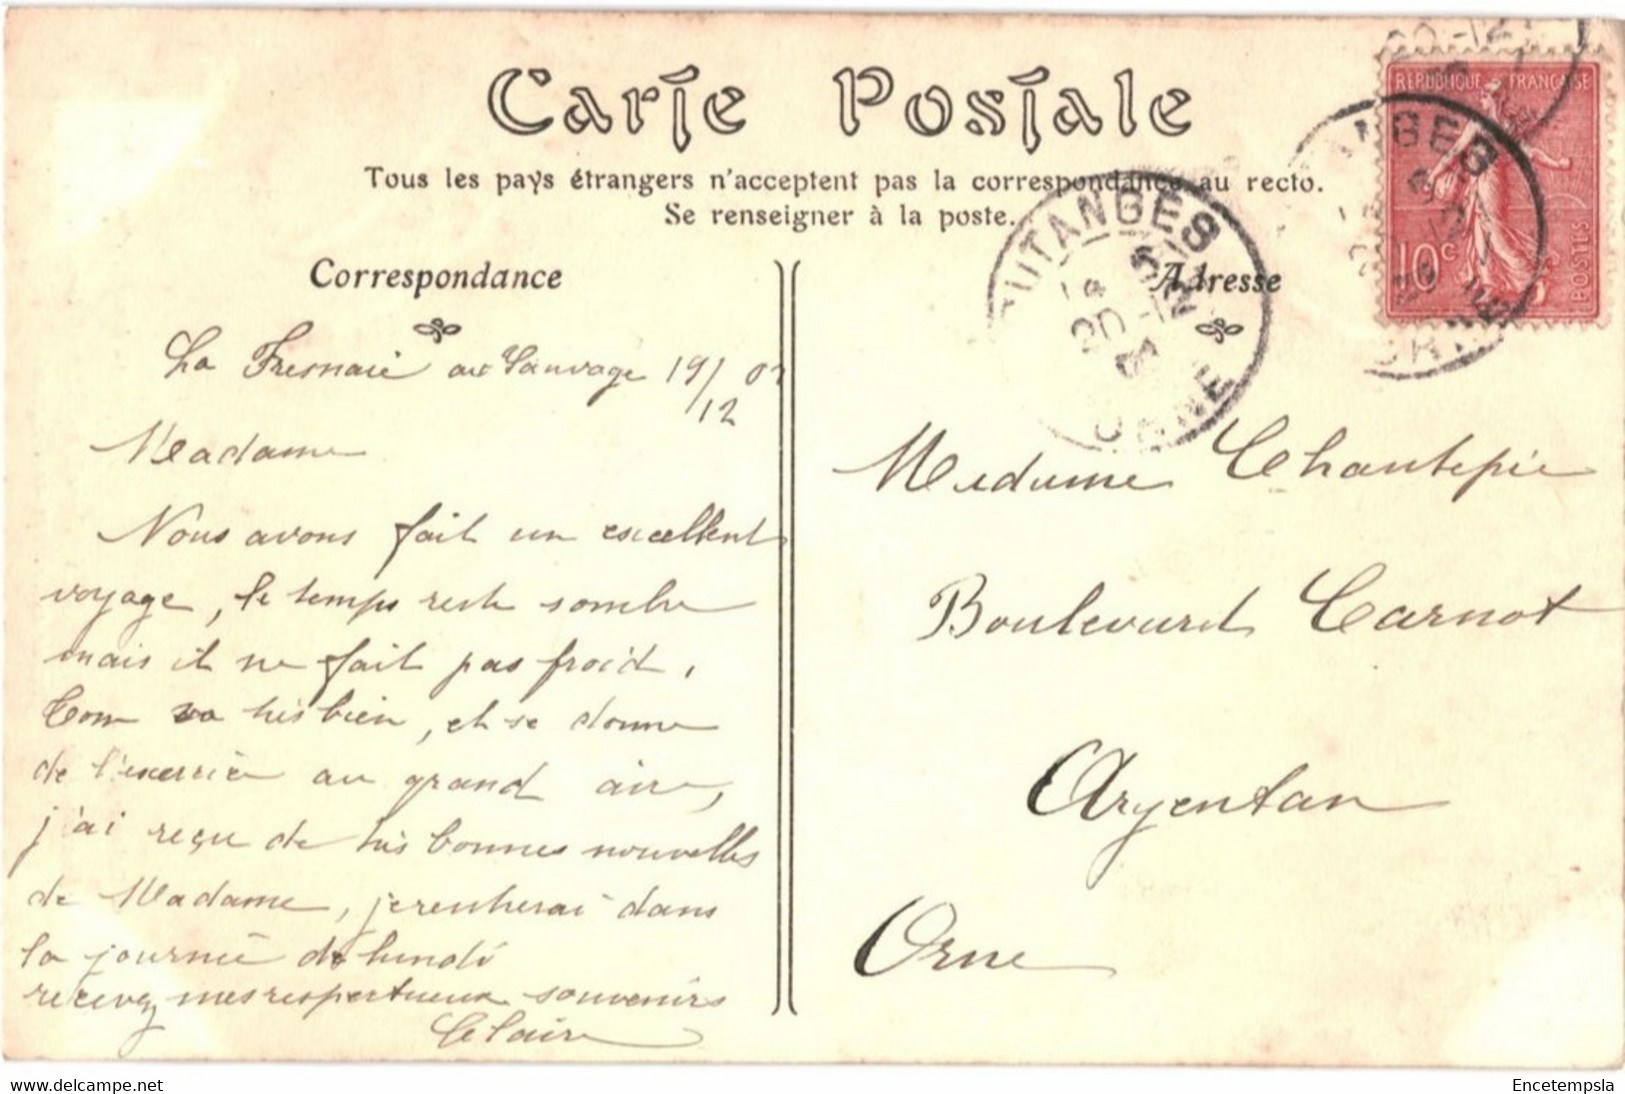 Carte Postale
Tous les pays étrangers n'acceptent pas la correspondance au recto.
Se renseigner à la poste.
Correspondance
La Fresnaie au Sauvage 19/12
Madame
Nous avons fait un excellent
voyage, le temps reste sombre
mais il ne fait pas froid,
Tom va très bien, et se donne
de l'exercice au grand air,
j'ai reçu de très bonnes nouvelles
de Madame, je rentrerai dans
la journée de lundi
recevez mes respectueux souvenirs
Claire
Adresse
Madame Chantepie
Boulevard Carnot
Argentan
Orne
REPUBLIQUE FRANÇAISE
10c
POSTES
PUTANGES
20-12
ORNE
ANGES
ORNE
20-12
Encetempsla